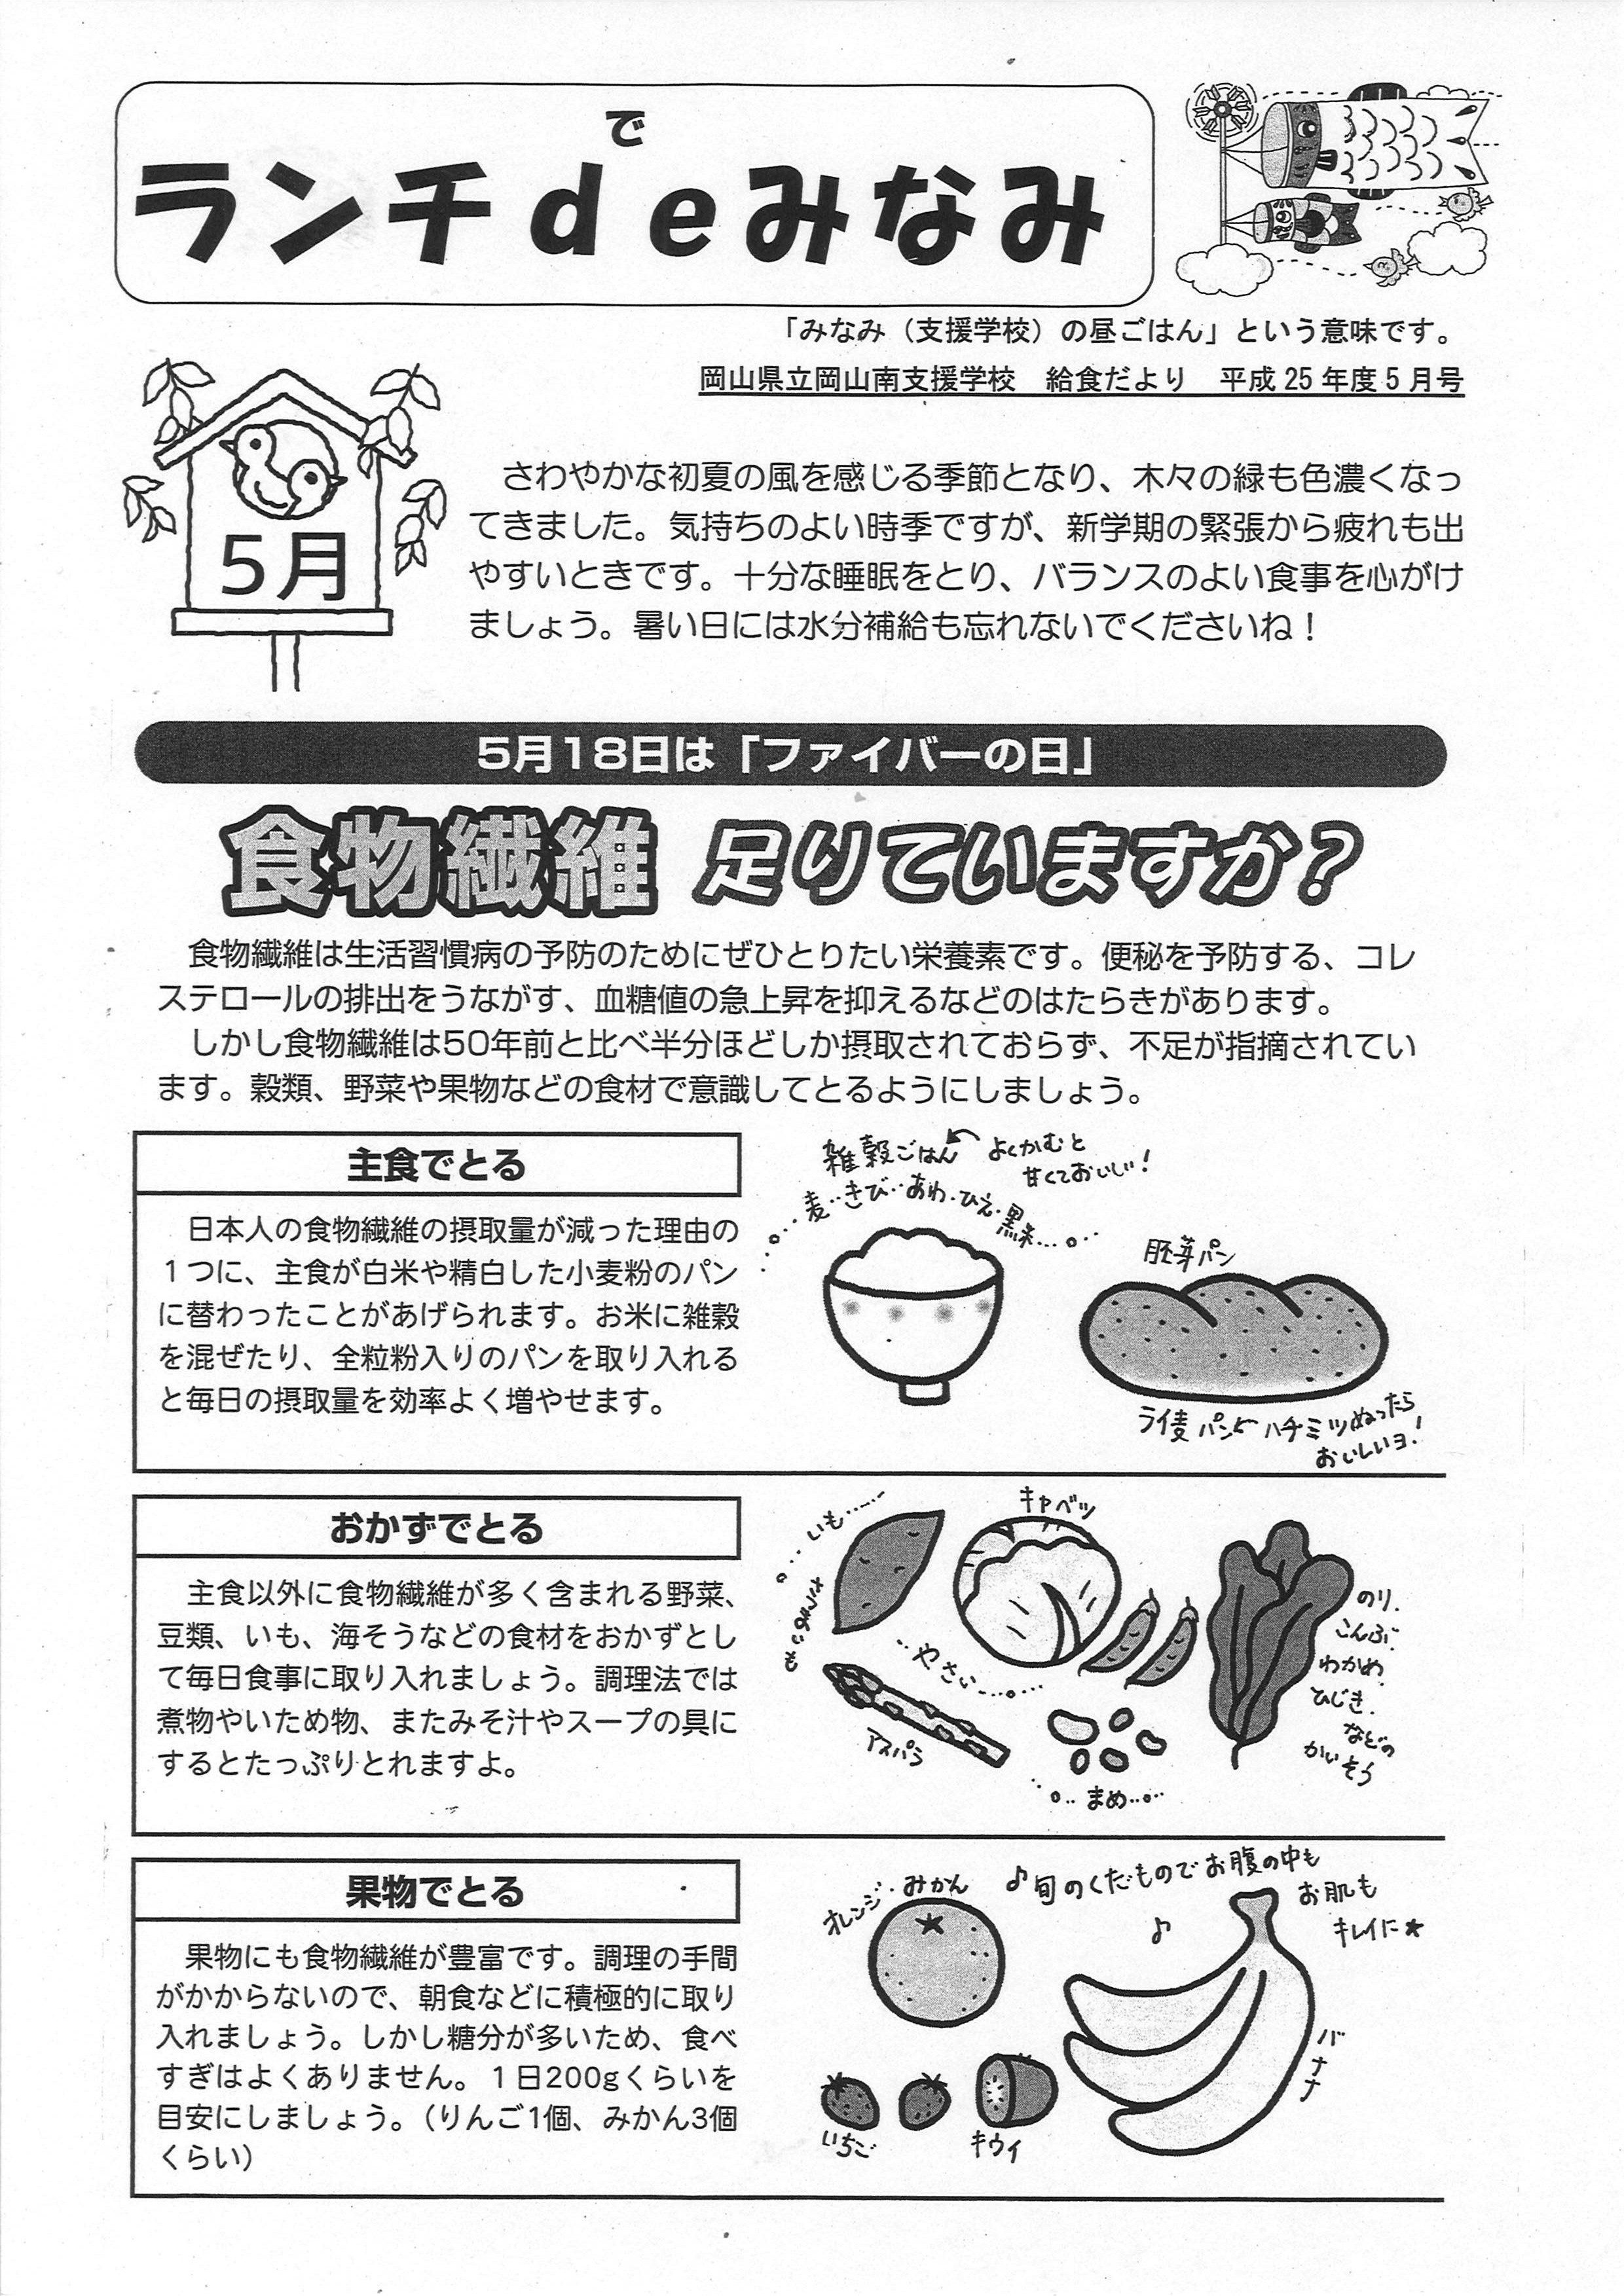 で
ランチdeみなみ
「みなみ（支援学校）の昼ごはん」という意味です。
岡山県立岡山南支援学校　給食だより　平成25年度5月号
5月
さわやかな初夏の風を感じる季節となり、木々の緑も色濃くなっ
てきました。気持ちのよい時季ですが、新学期の緊張から疲れも出
やすいときです。十分な睡眠をとり、バランスのよい食事を心がけ
ましょう。暑い日には水分補給も忘れないでくださいね！
5月18日は「ファイバーの日」
食物繊維 足りていますか？
食物繊維は生活習慣病の予防のためにぜひとりたい栄養素です。便秘を予防する、コレ
ステロールの排出をうながす、血糖値の急上昇を抑えるなどのはたらきがあります。
しかし食物繊維は50年前と比べ半分ほどしか摂取されておらず、不足が指摘されてい
ます。穀類、野菜や果物などの食材で意識してとるようにしましょう。
主食でとる
日本人の食物繊維の摂取量が減った理由の
1つに、主食が白米や精白した小麦粉のパン
に替わったことがあげられます。お米に雑穀
を混ぜたり、全粒粉入りのパンを取り入れる
と毎日の摂取量を効率よく増やせます。
雑穀ごはん
よくかむと
甘くておいしい！
麦‥きび‥あわ・ひえ・黒米…
胚芽パン
ライ麦パン
ハチミツぬったら
おいしいヨ！
おかずでとる
主食以外に食物繊維が多く含まれる野菜、
豆類、いも、海そうなどの食材をおかずとし
て毎日食事に取り入れましょう。調理法では
煮物やいため物、またみそ汁やスープの具に
するとたっぷりとれますよ。
いも……
キャベツ
‥やさい…
アスパラ
‥まめ‥
のり、
こんぶ、
わかめ、
ひじき、
などの
かいそう
果物でとる
果物にも食物繊維が豊富です。調理の手間
がかからないので、朝食などに積極的に取り
入れましょう。しかし糖分が多いため、食べ
すぎはよくありません。1日200gくらいを
目安にしましょう。（りんご1個、みかん3個
くらい）
オレンジ・みかん
♪旬のくだものでお腹の中も
お肌も
キレイに★
♪
バナナ
いちご
キウイ